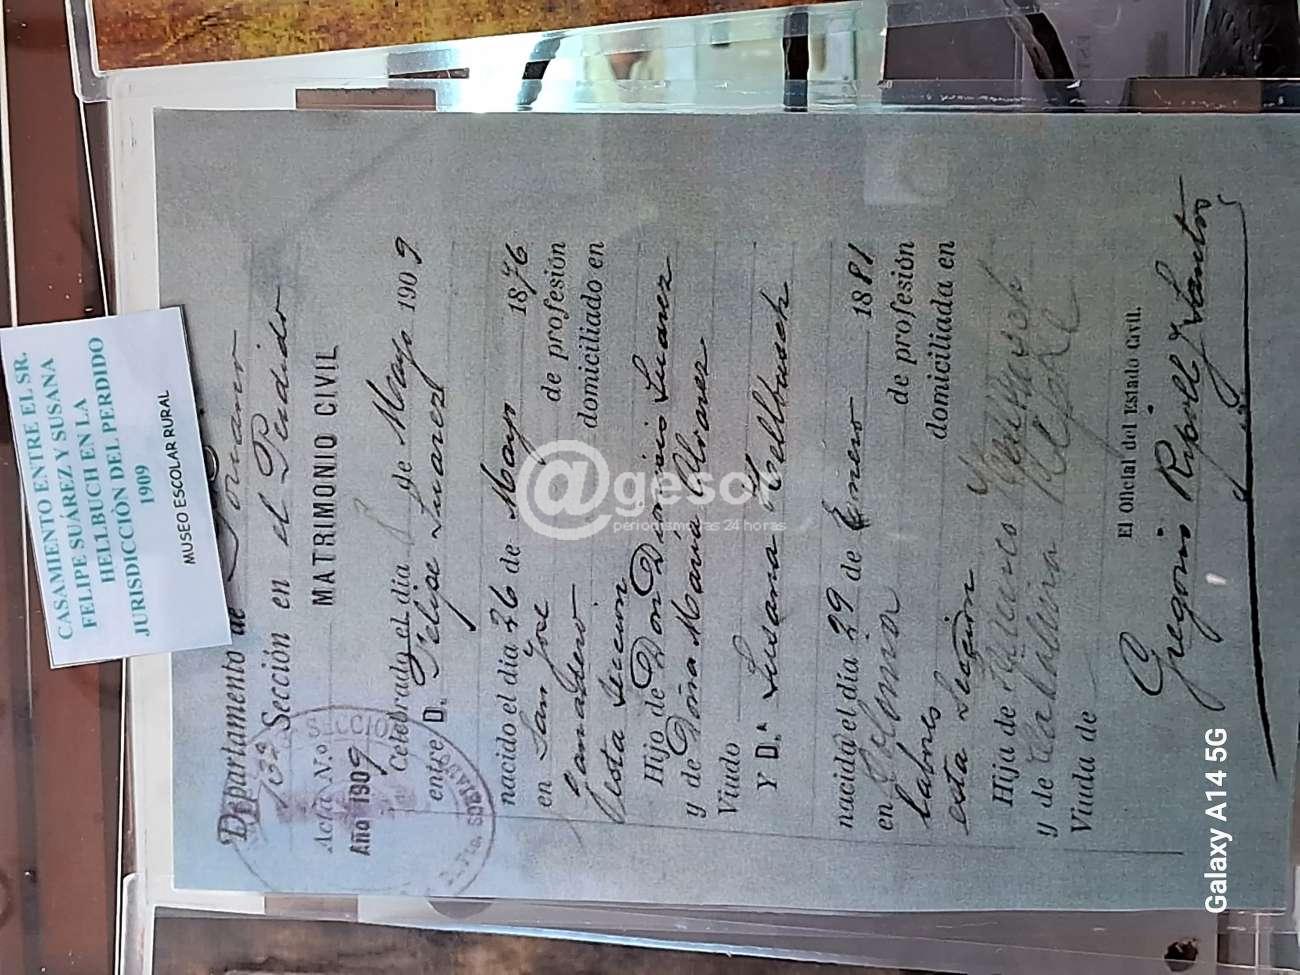 CASAMIENTO ENTRE EL SR.
FELIPE SUÁREZ Y SUSANA
HELLBUCH EN LA
JURISDICCIÓN DEL PERDIDO
1909
MUSEO ESCOLAR RURAL
Departamento de Soriano
Sección en el Perdido
MATRIMONIO CIVIL
Acta N.º
Año 1909
SECCION
SORIANO
Celebrado el día de Mayo 1909
entre D. Felipe Suarez
nacido el día 26 de Mayo 1876
en San José de profesión
Hacendero domiciliado en
esta seccion
Hijo de Don Dionisio Suarez
y de Doña Maria Alvarez
Viudo
Y D.ª Susana Hellbusch
nacida el día 29 de Enero 1881
en Colonia de profesión
labores domiciliada en
esta Sección
Hija de
y de Catalina
Viuda de
El Oficial del Estado Civil.
Gregorio Ripoll y Santos
@gesor
periodismo las 24 horas
Galaxy A14 5G